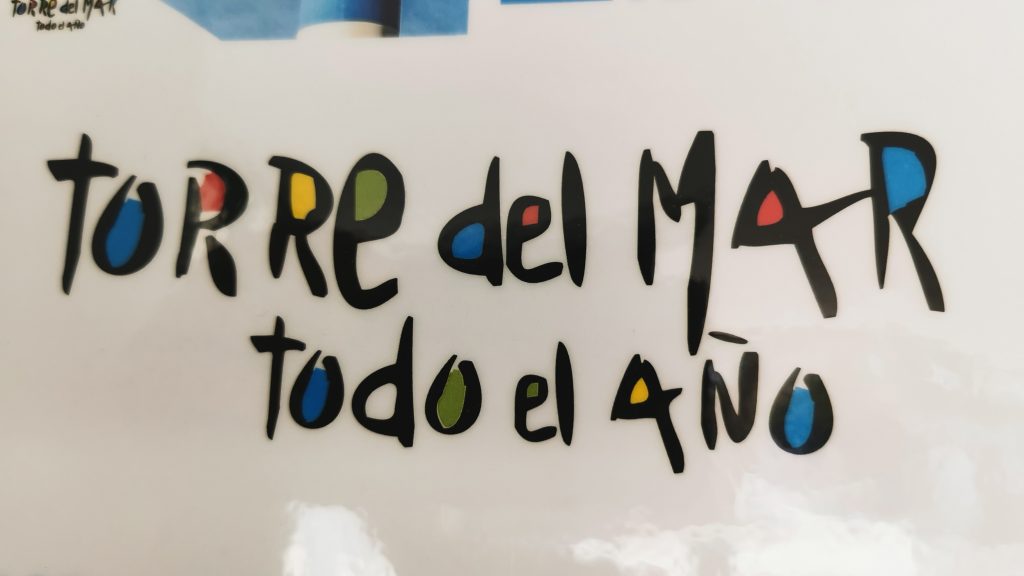 TORRE del MAR
Todo el Año
TORRe del MAR
Todo el AÑo